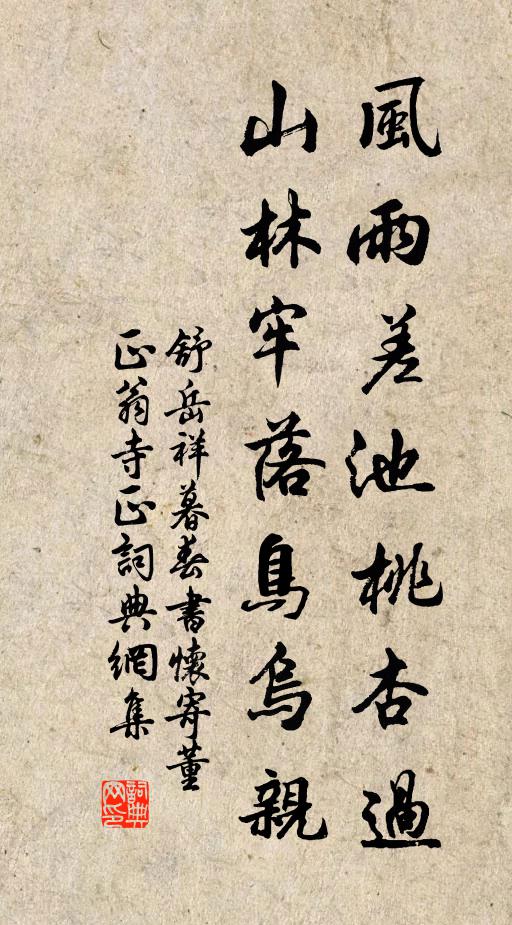 風雨差池桃杏過
山林牢落鳥烏親
舒岳祥暮春書懷寄董
正翁寺正詞典網集
詞典
网印